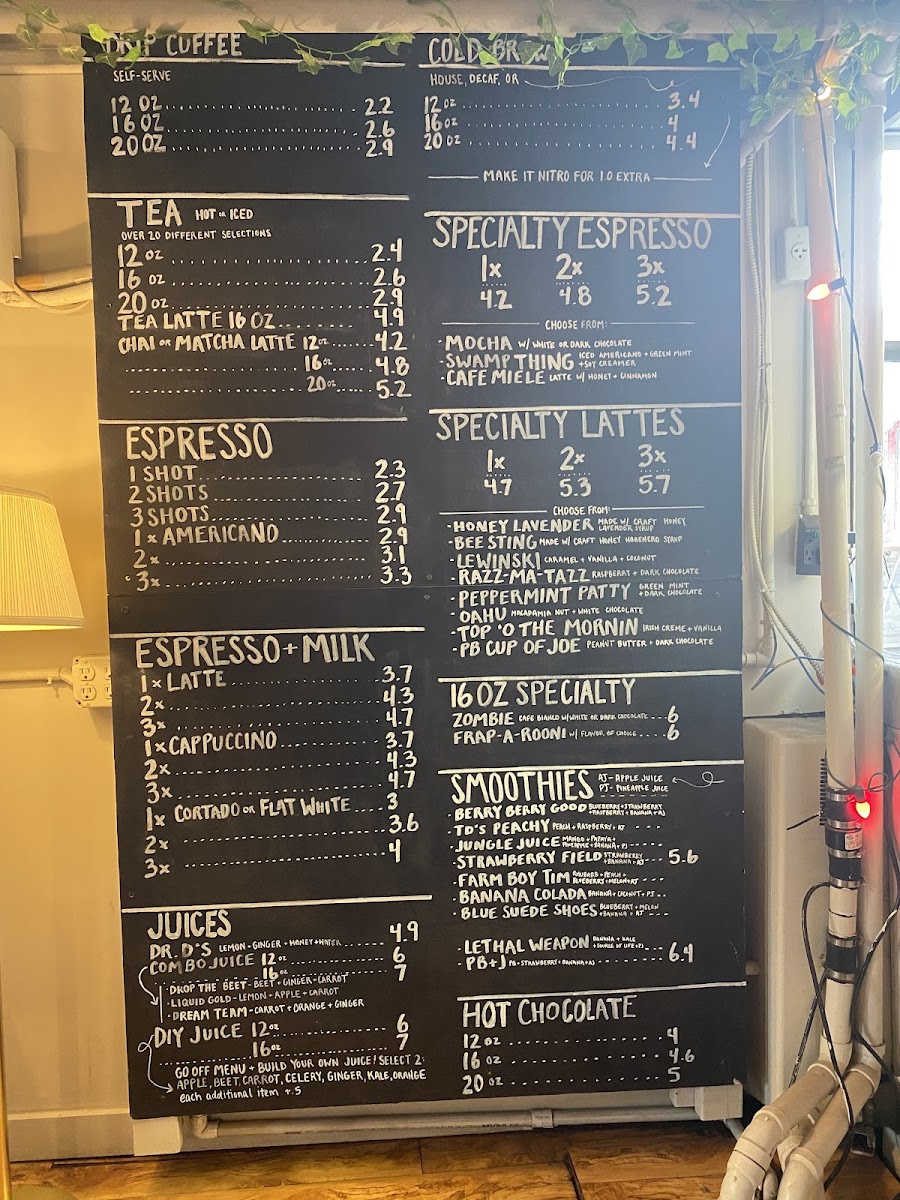 DRIP COFFEE
SELF-SERVE
12 OZ 2.2
16 OZ 2.6
20 OZ 2.9
TEA HOT OR ICED
OVER 20 DIFFERENT SELECTIONS
12 OZ 2.4
16 OZ 2.6
20 OZ 2.9
TEA LATTE 16 OZ 4.9
CHAI OR MATCHA LATTE 12 OZ 4.2
16 OZ 4.8
20 OZ 5.2
ESPRESSO
1 SHOT 2.3
2 SHOTS 2.7
3 SHOTS 2.9
1X AMERICANO 2.9
2X 3.1
3X 3.3
ESPRESSO + MILK
1X LATTE 3.7
2X 4.3
3X 4.7
1X CAPPUCCINO 3.7
2X 4.3
3X 4.7
1X CORTADO OR FLAT WHITE 3
2X 3.6
3X 4
JUICES
DR. D'S LEMON - GINGER - HONEY + WATER 4.9
COMBO JUICE 12 OZ 6
16 OZ 7
· DROP THE BEET - BEET + GINGER - CARROT
· LIQUID GOLD - LEMON - APPLE + CARROT
· DREAM TEAM - CARROT + ORANGE + GINGER
DIY JUICE 12 OZ 6
16 OZ 7
GO OFF MENU + BUILD YOUR OWN JUICE! SELECT 2:
APPLE, BEET, CARROT, CELERY, GINGER, KALE, ORANGE
each additional item +.5
COLD BREW
HOUSE, DECAF, OR
12 OZ 3.4
16 OZ 4
20 OZ 4.4
MAKE IT NITRO FOR 1.0 EXTRA
SPECIALTY ESPRESSO
1X 2X 3X
4.2 4.8 5.2
CHOOSE FROM:
· MOCHA W/ WHITE OR DARK CHOCOLATE
· SWAMP THING ICED AMERICANO + GREEN MINT + SOY CREAMER
· CAFE MIELE LATTE W/ HONEY + CINNAMON
SPECIALTY LATTES
1X 2X 3X
4.7 5.3 5.7
CHOOSE FROM:
· HONEY LAVENDER MADE W/ CRAFT HONEY LAVENDER SYRUP
· BEE STING MADE W/ CRAFT HONEY HABENERO SYRUP
· LEWINSKI CARAMEL + VANILLA + COCONUT
· RAZZ-MA-TAZZ RASPBERRY + DARK CHOCOLATE
· PEPPERMINT PATTY GREEN MINT + DARK CHOCOLATE
· OAHU MACADAMIA NUT + WHITE CHOCOLATE
· TOP 'O THE MORNIN IRISH CREME + VANILLA
· PB CUP OF JOE PEANUT BUTTER + DARK CHOCOLATE
16 OZ SPECIALTY
ZOMBIE CAFE BIANCO W/ WHITE OR DARK CHOCOLATE 6
FRAP-A-ROONI W/ FLAVOR OF CHOICE 6
SMOOTHIES AJ - APPLE JUICE
PJ - PINEAPPLE JUICE
· BERRY BERRY GOOD BLUEBERRY + STRAWBERRY + RASPBERRY + BANANA + AJ
· TD'S PEACHY PEACH + RASPBERRY + AJ
· JUNGLE JUICE MANGO + PAPAYA + PINEAPPLE + BANANA + PJ
· STRAWBERRY FIELD STRAWBERRY + BANANA + AJ 5.6
· FARM BOY TIM RHUBARB + PEACH + BLUEBERRY + MELON + AJ
· BANANA COLADA BANANA + COCONUT + PJ
· BLUE SUEDE SHOES BLUEBERRY + MELON + BANANA + AJ
· LETHAL WEAPON BANANA + KALE + SOURCE OF LIFE + PJ
· PB+J PB + STRAWBERRY + BANANA + AJ 6.4
HOT CHOCOLATE
12 OZ 4
16 OZ 4.6
20 OZ 5